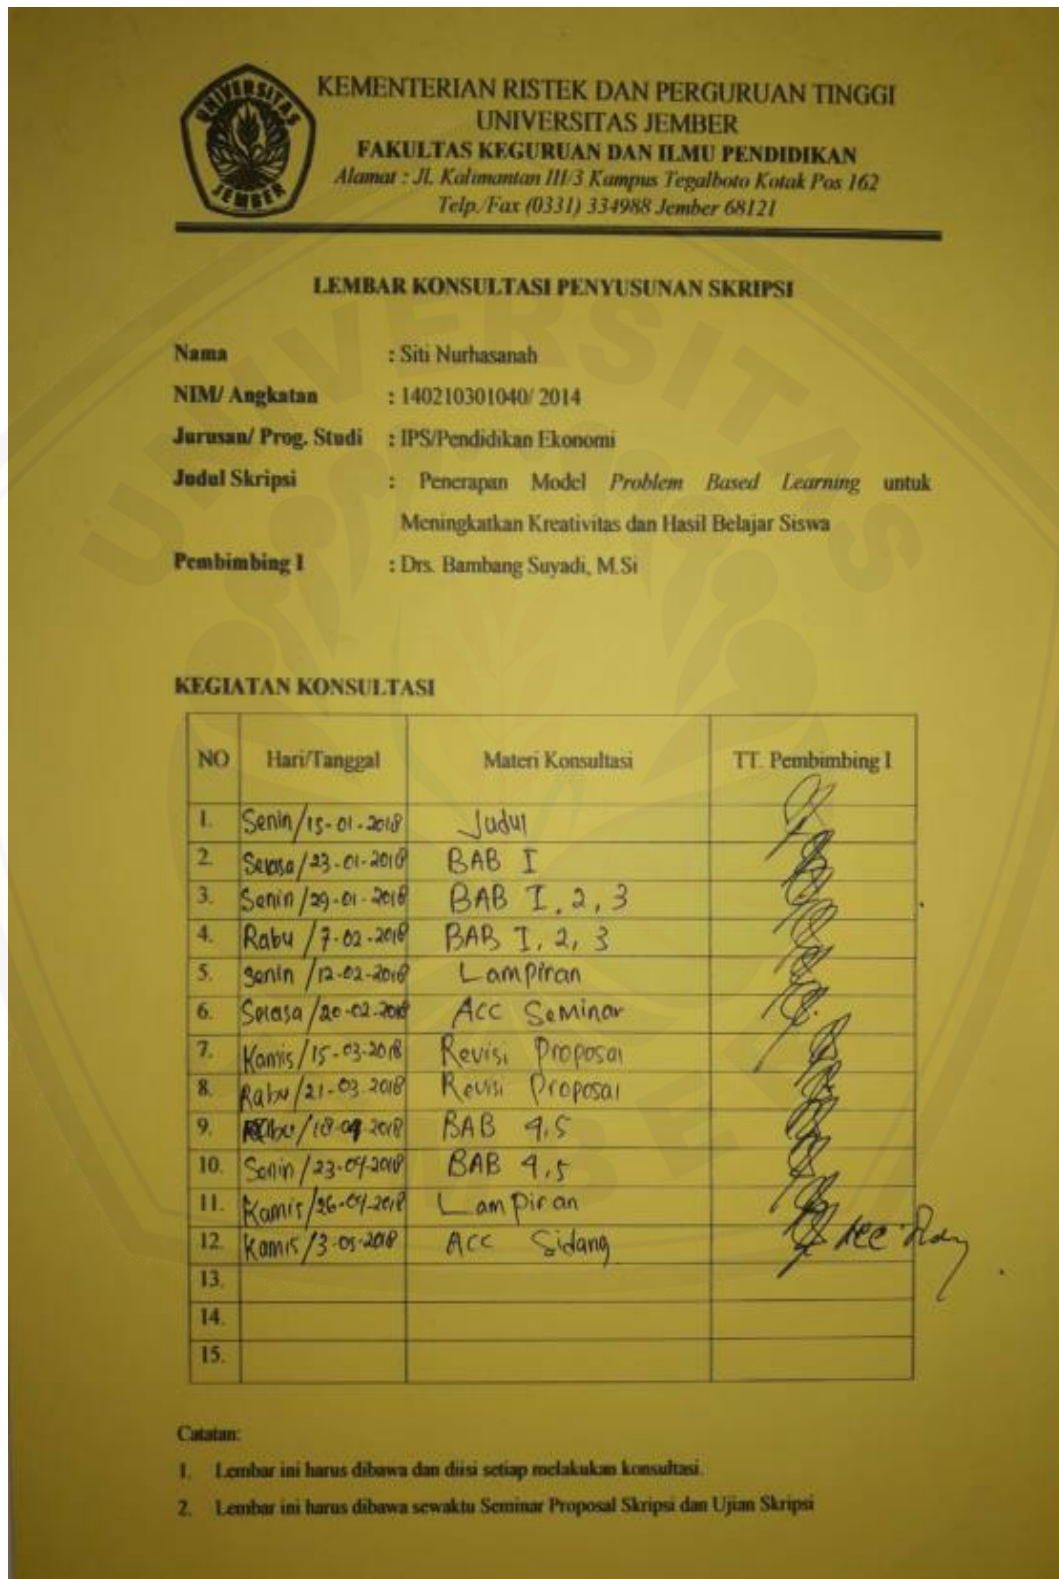 UNIVERSITAS
JEMBER
KEMENTERIAN RISTEK DAN PERGURUAN TINGGI
UNIVERSITAS JEMBER
FAKULTAS KEGURUAN DAN ILMU PENDIDIKAN
Alamat : Jl. Kalimantan III/3 Kampus Tegalboto Kotak Pos 162
Telp./Fax (0331) 334988 Jember 68121
LEMBAR KONSULTASI PENYUSUNAN SKRIPSI
Nama : Siti Nurhasanah
NIM/ Angkatan : 140210301040/ 2014
Jurusan/ Prog. Studi : IPS/Pendidikan Ekonomi
Judul Skripsi : Penerapan Model Problem Based Learning untuk
Meningkatkan Kreativitas dan Hasil Belajar Siswa
Pembimbing I : Drs. Bambang Suyadi, M.Si
KEGIATAN KONSULTASI
NO Hari/Tanggal Materi Konsultasi TT. Pembimbing I
1. Senin/15-01-2018 Judul
2. Selasa/23-01-2018 BAB I
3. Senin/29-01-2018 BAB I, 2, 3
4. Rabu/7-02-2018 BAB I, 2, 3
5. Senin/12-02-2018 Lampiran
6. Selasa/20-02-2018 Acc Seminar
7. Kamis/15-03-2018 Revisi Proposal
8. Rabu/21-03-2018 Revisi Proposal
9. /18-04-2018 BAB 4,5
10. Senin/23-04-2018 BAB 4,5
11. Kamis/26-04-2018 Lampiran
12. Kamis/3-05-2018 Acc Sidang
13.
14.
15.
Catatan:
1. Lembar ini harus dibawa dan diisi setiap melakukan konsultasi.
2. Lembar ini harus dibawa sewaktu Seminar Proposal Skripsi dan Ujian Skripsi